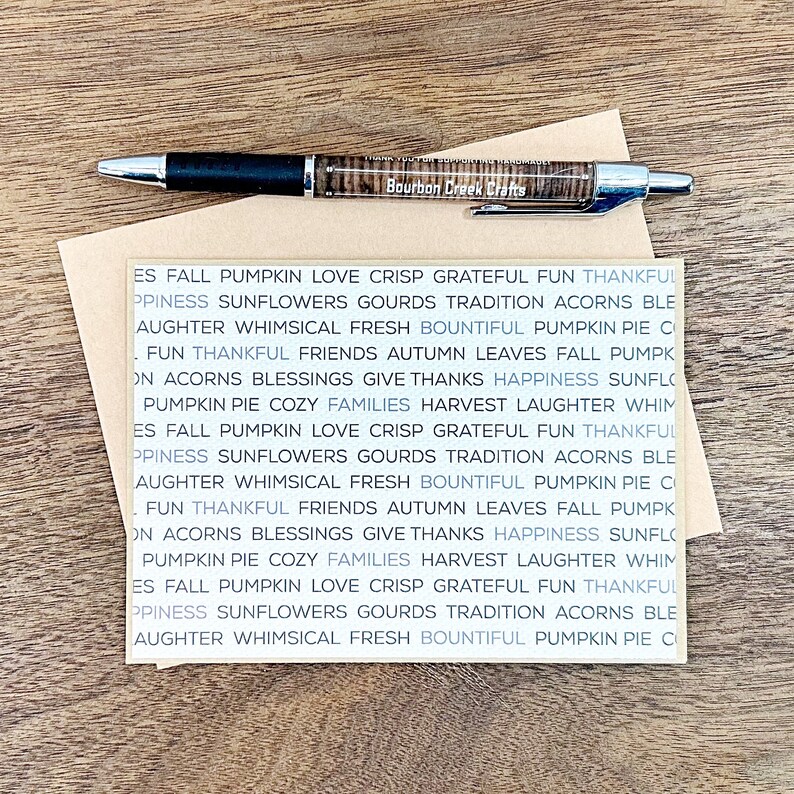 THANK YOU FOR SUPPORTING HANDMADE!
Bourbon Creek Crafts
ES FALL PUMPKIN LOVE CRISP GRATEFUL FUN THANKFUL
PPINESS SUNFLOWERS GOURDS TRADITION ACORNS BLE
AUGHTER WHIMSICAL FRESH BOUNTIFUL PUMPKIN PIE CO
L FUN THANKFUL FRIENDS AUTUMN LEAVES FALL PUMPK
ON ACORNS BLESSINGS GIVE THANKS HAPPINESS SUNFLO
PUMPKIN PIE COZY FAMILIES HARVEST LAUGHTER WHIM
ES FALL PUMPKIN LOVE CRISP GRATEFUL FUN THANKFUL
PPINESS SUNFLOWERS GOURDS TRADITION ACORNS BLE
AUGHTER WHIMSICAL FRESH BOUNTIFUL PUMPKIN PIE CO
L FUN THANKFUL FRIENDS AUTUMN LEAVES FALL PUMPK
ON ACORNS BLESSINGS GIVE THANKS HAPPINESS SUNFLO
PUMPKIN PIE COZY FAMILIES HARVEST LAUGHTER WHIM
ES FALL PUMPKIN LOVE CRISP GRATEFUL FUN THANKFUL
PPINESS SUNFLOWERS GOURDS TRADITION ACORNS BLE
AUGHTER WHIMSICAL FRESH BOUNTIFUL PUMPKIN PIE CO